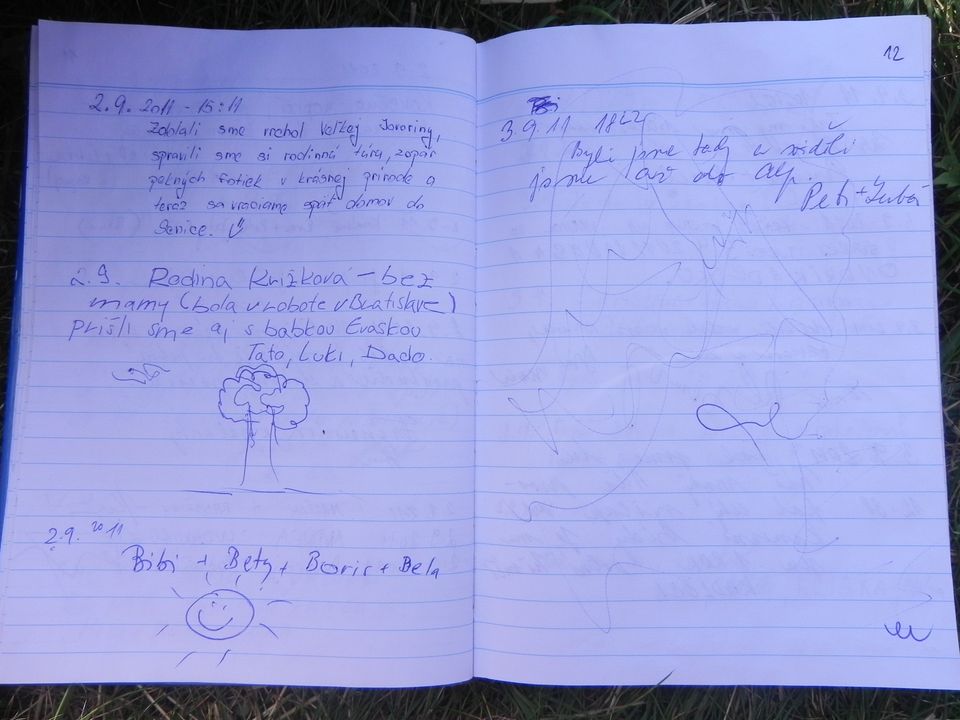 2.9. 2011 - 15:11
Zdolali sme vrchol Veľkej Javoriny,
spravili sme si rodinnú túru, zopár
pekných fotiek v krásnej prírode a
teraz sa vraciame späť domov do
Senice.
2.9. Rodina Krížková - bez
mamy (bola v robote v Bratislave)
prišli sme aj s babkou Evaskou
Tato, Luki, Dado.
2.9. 2011
Bibi + Bety + Boris + Bela
12
3.9.11 18
Byli jsme tady a viděli
jsme až do Alp.
Petr + Luba